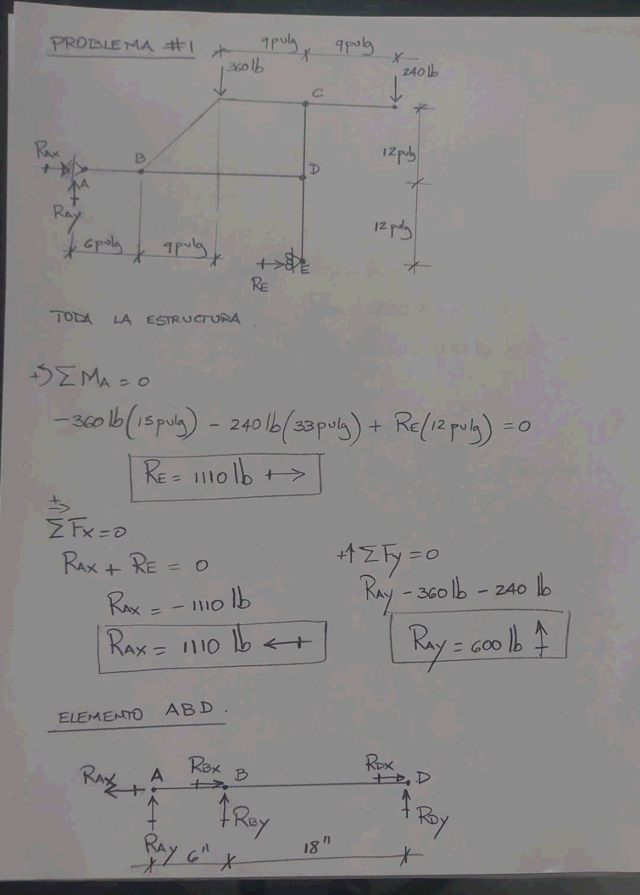 PROBLEMA #1
9pulg 9pulg
360lb 240lb
C
12pulg
RAX
B
A
D
RAY
12pulg
6pulg 9pulg
E
RE
TODA LA ESTRUCTURA
+ ΣMA = 0
-360lb(15pulg) - 240lb(33pulg) + RE(12pulg) = 0
RE = 1110lb
+ ΣFx = 0
RAX + RE = 0
RAX = -1110lb
RAX = 1110 lb ←
+↑ΣFy = 0
RAY - 360lb - 240lb
RAY = 600lb ↑
ELEMENTO ABD.
RAX A RBX B RDX D
RAY RBY RDY
6" 18"